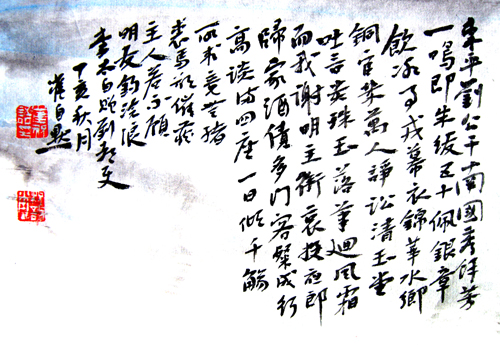 東平劉公干南國秀餘芳
一鳴即朱紱五十佩銀章
飲冰事戎幕衣錦華水鄉
銅官幾萬人諍訟清玉堂
吐言貴珠玉落筆迴風霜
而我謝明主銜哀投夜郎
歸家酒債多門客粲成行
高談滿四座一日傾千觴
所求竟無緒
裘馬欲摧藏
主人若不顧
明发釣滄浪
李太白贈劉都史
丁亥秋月